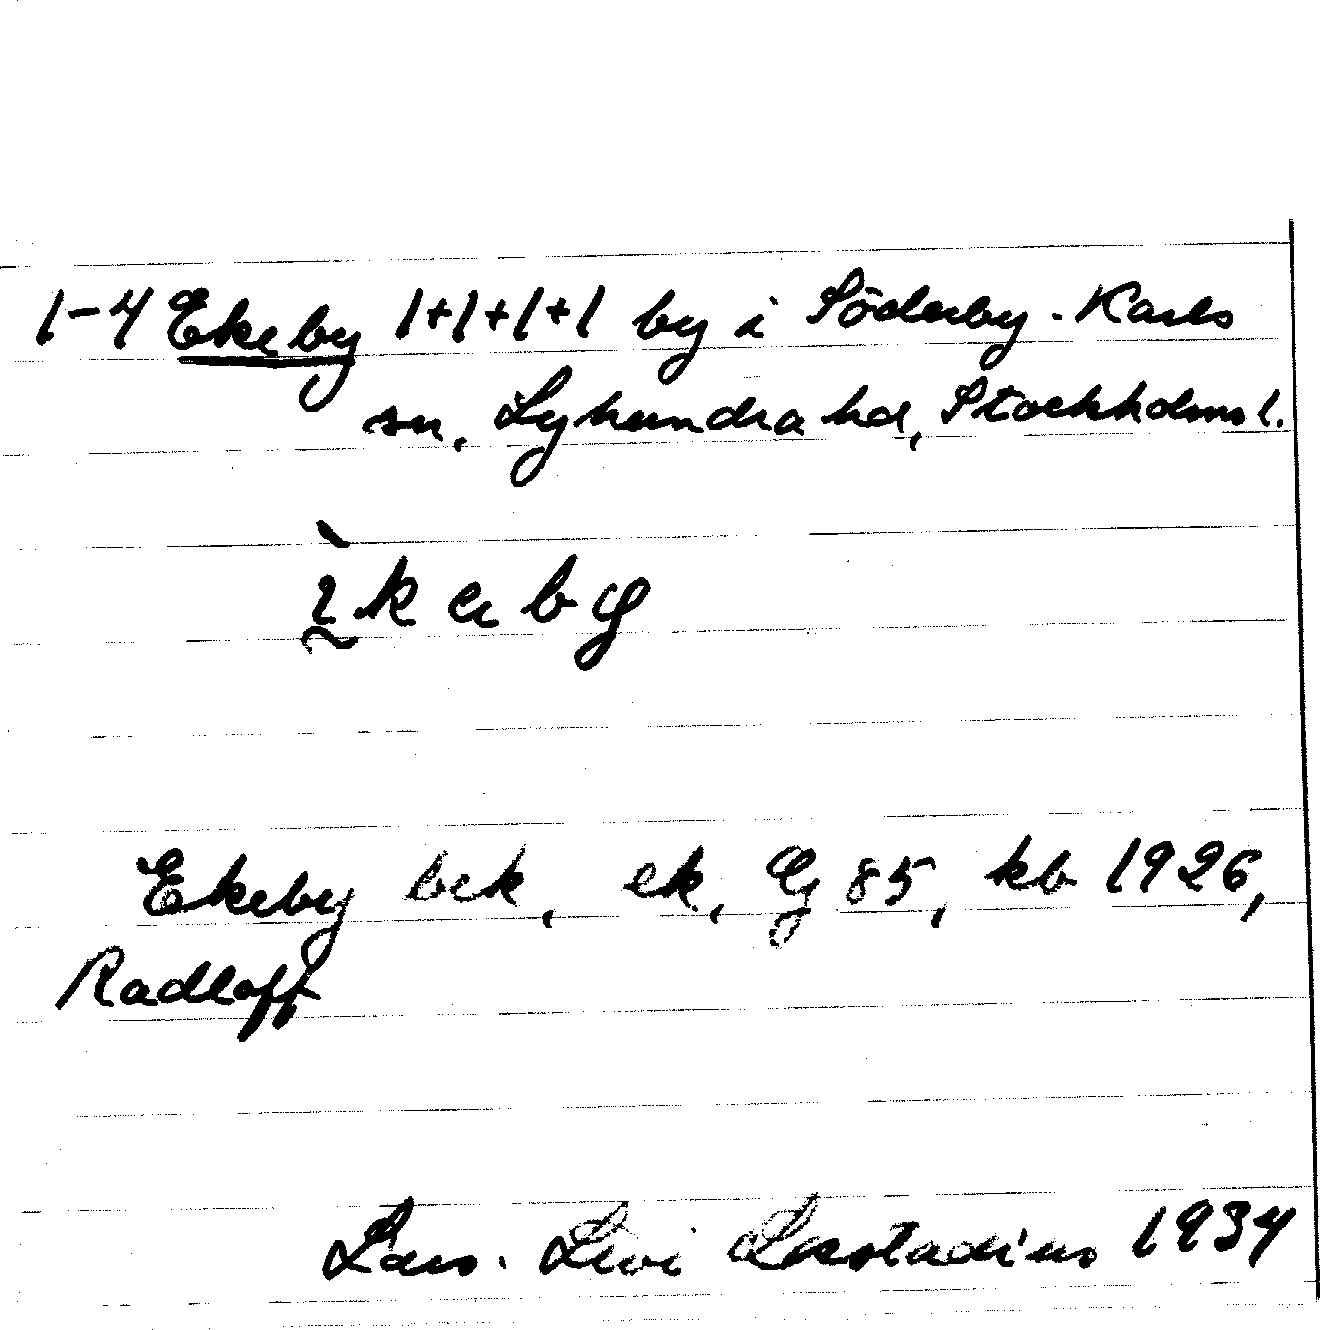 1-4 Ekeby 1+1+1+1 by i Söderby-Karls
sn, Lyhundra hd, Stockholms l.
Ekeby bek, ek, Gg 85, kb 1926,
Radloff
Lars-Levi Læstadius 1934